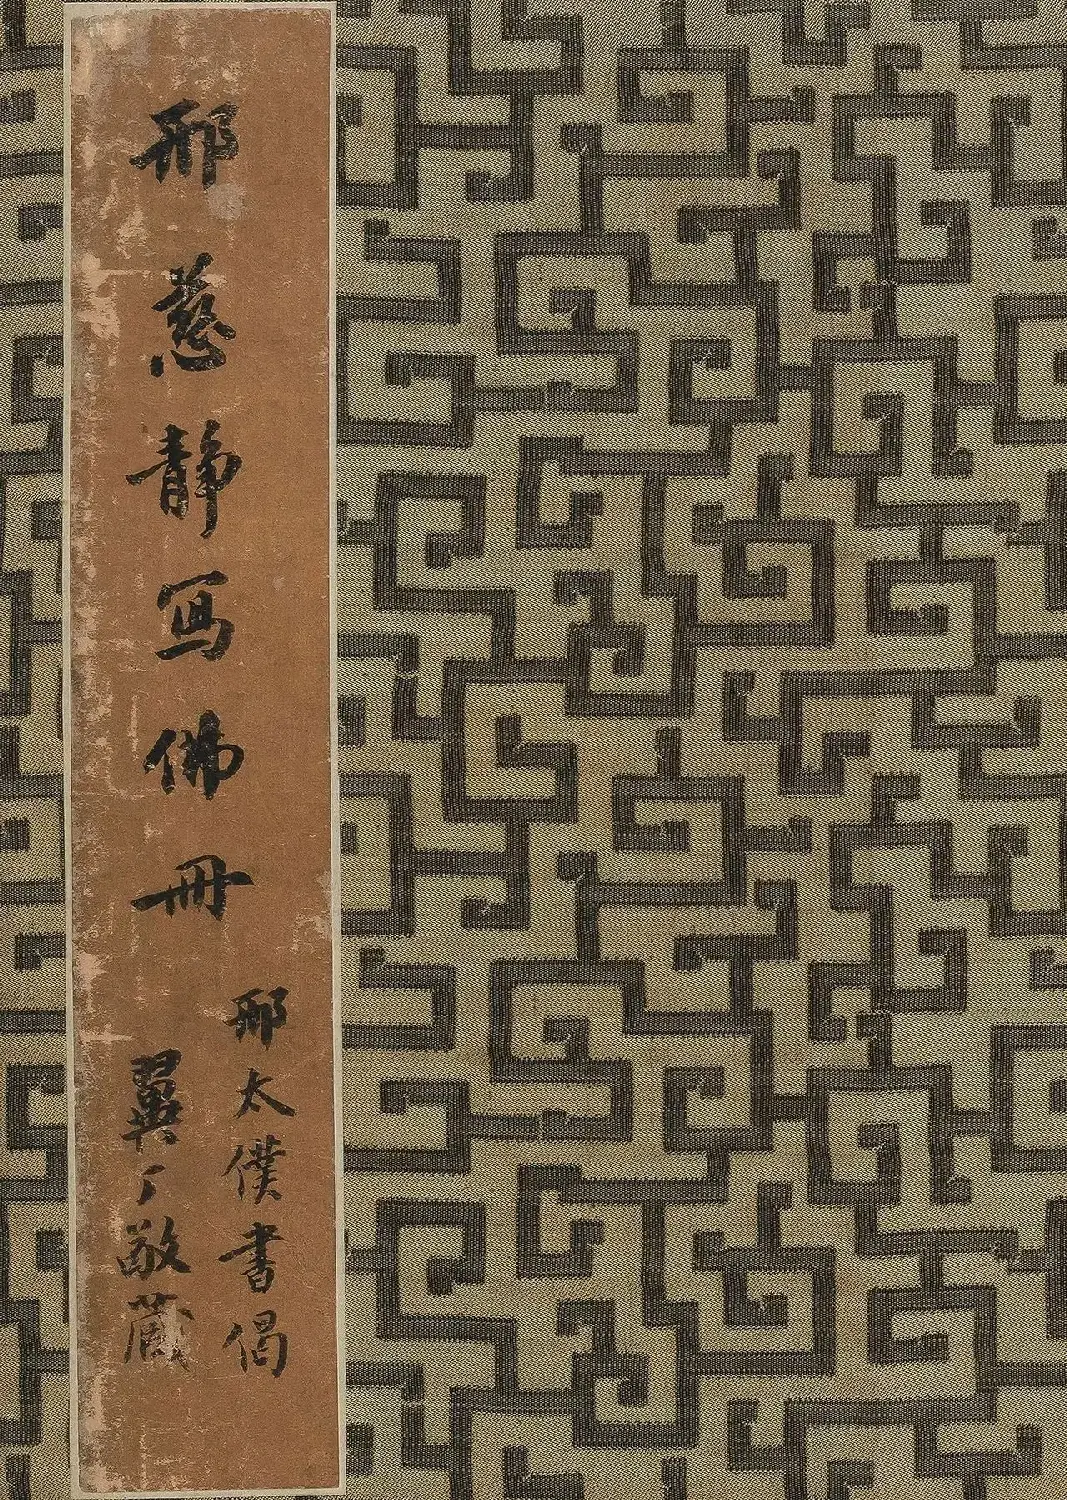 邢慈静写佛冊
邢太僕書偈
翼之敬藏